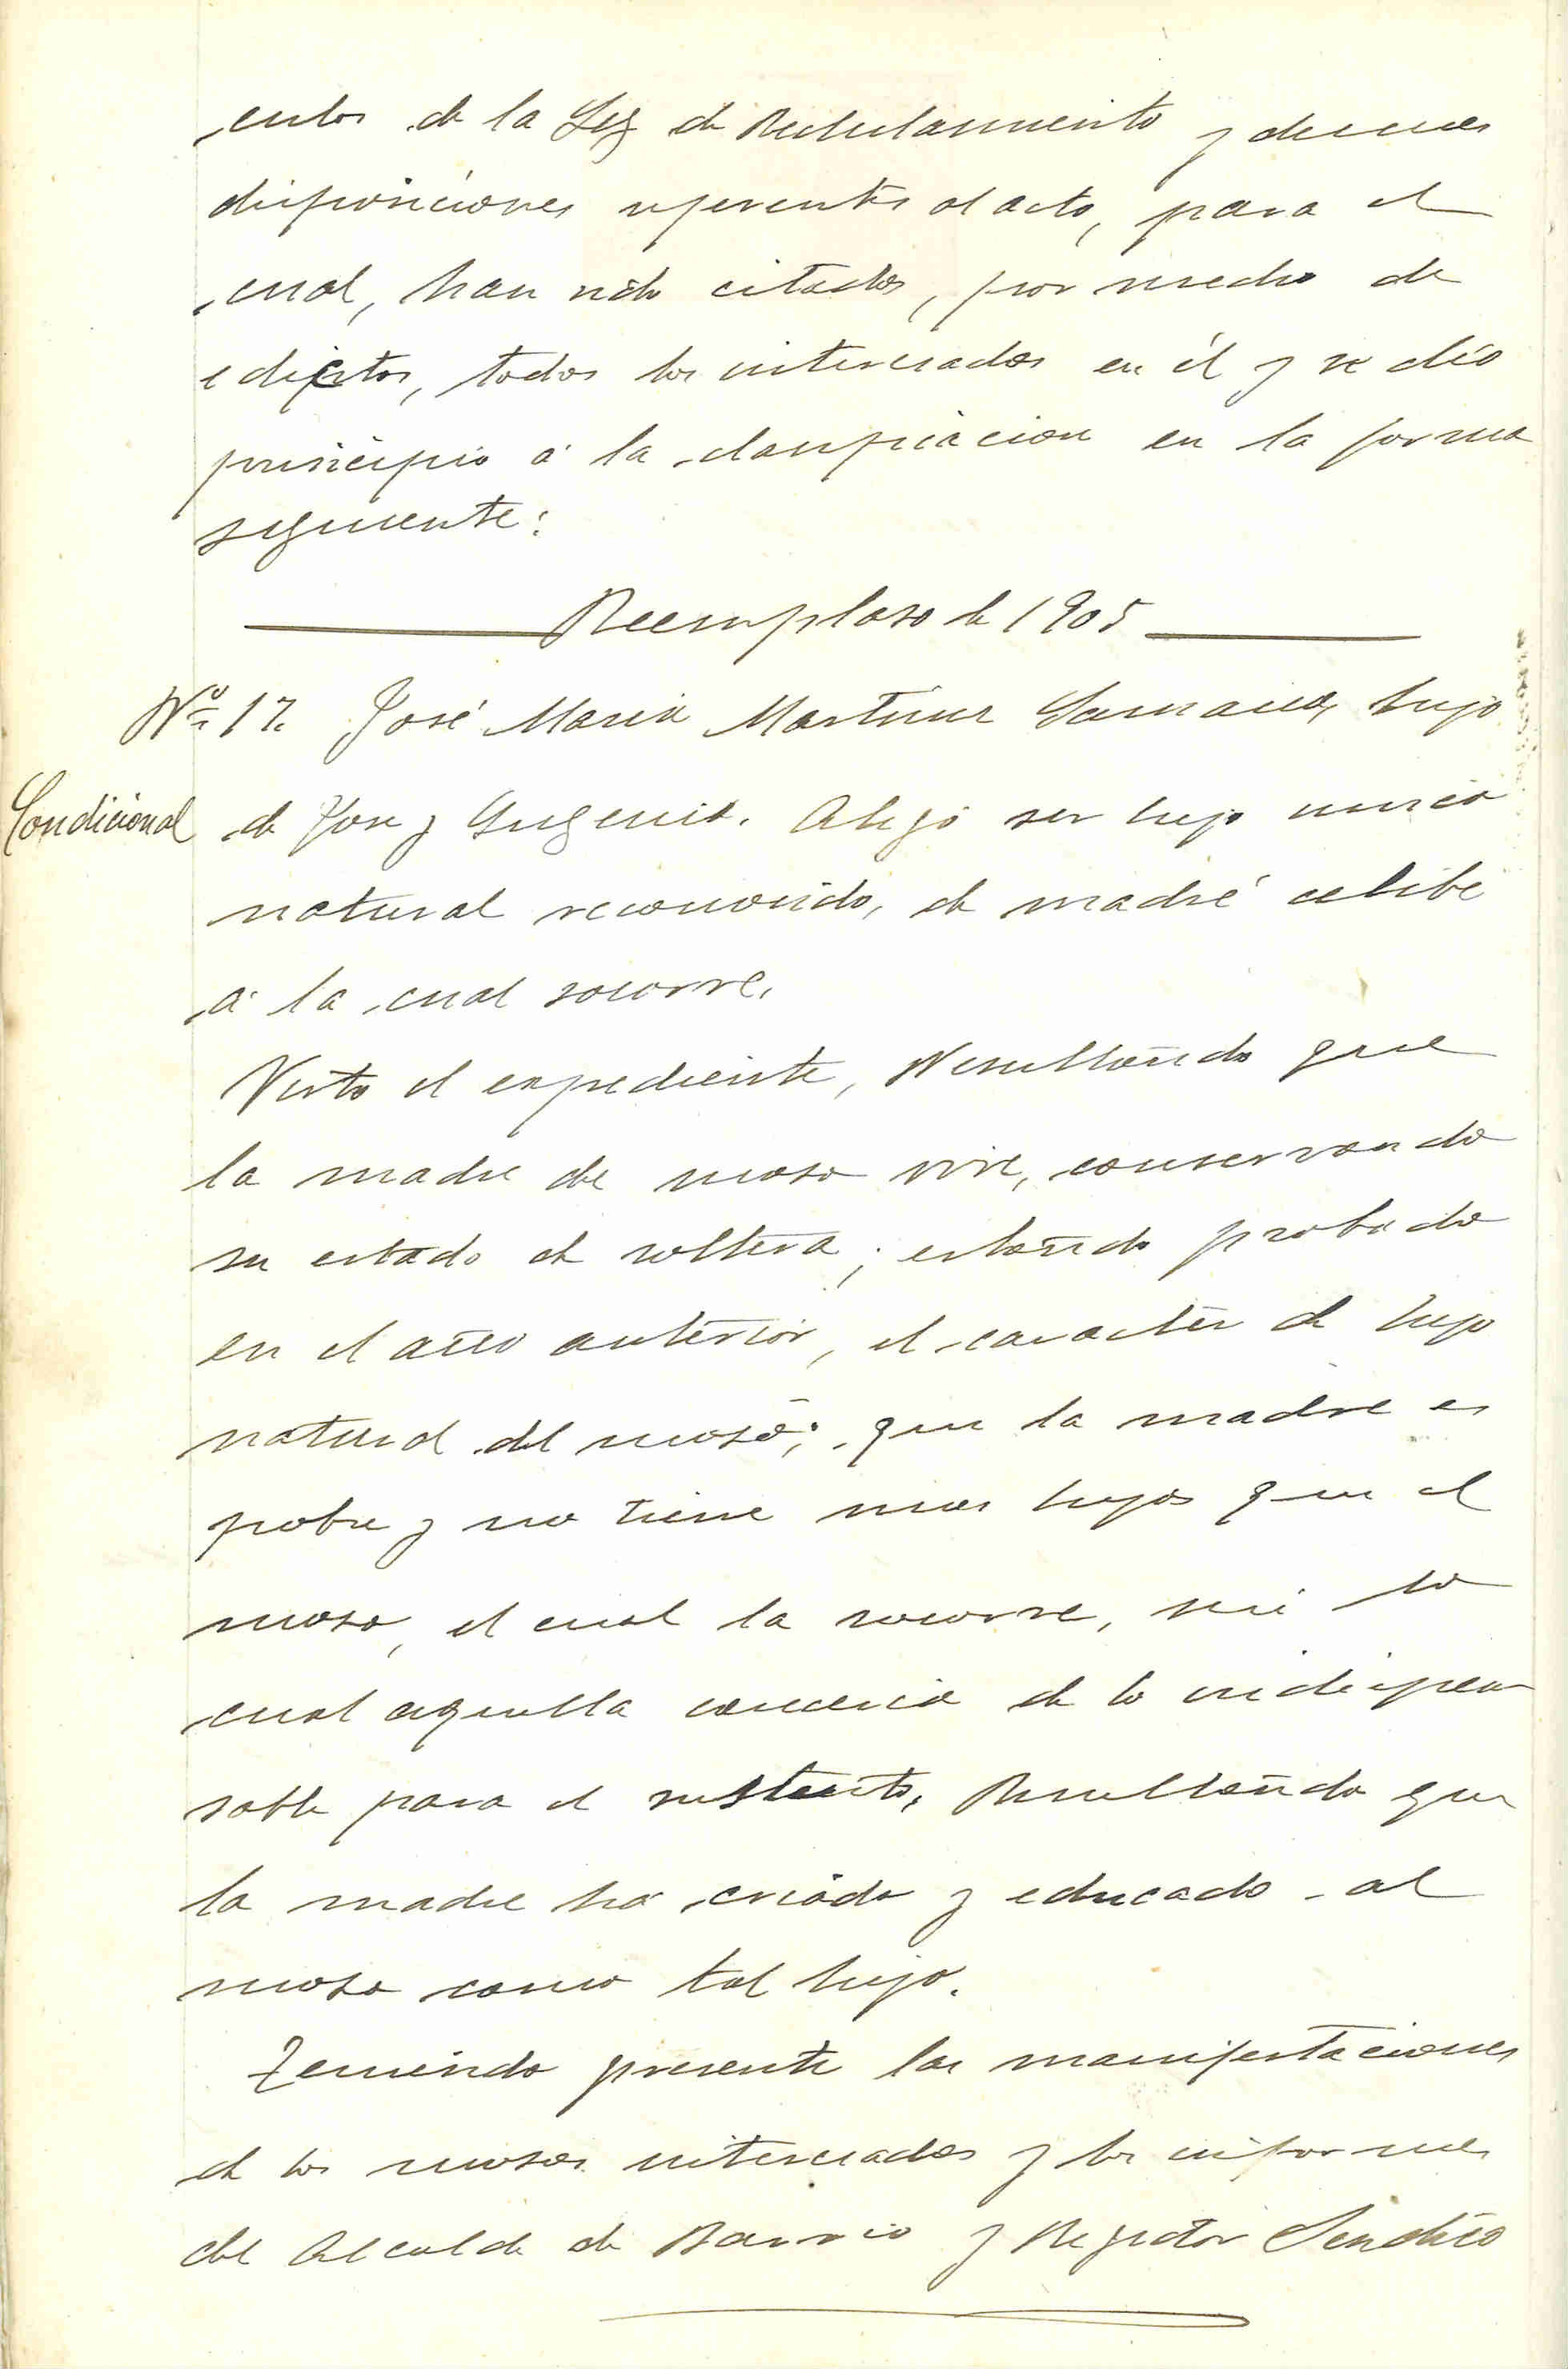 culos de la Ley de Reclutamiento y demas
disposiciones referentes al acto, para el
cual, han sido citados, por medio de
edictos, todos los interesados en él y se dió
principio á la clasificacion en la forma
siguiente:
Reemplaso de 1905
Nº 17. José Maria Martinez hijo
Condicional de Jose y Eugenia. Alegó ser hijo unico
natural reconocido, de madre celibe
á la cual socorre.
Visto el expediente, Resultando que
la madre de moso vive, conservando
su estado de soltera; estando probado
en el año anterior, el caracter de hijo
natural del moso; que la madre es
pobre y no tiene mas hijos que el
moso, el cual la socorre, sin lo
cual aquella careceria de lo indispen
sable para el sustento, Resultando que
la madre ha criado y educado al
moso como tal hijo.
Teniendo presente las manifestaciones
de los mosos interesados y los informes
del Alcalde de Barrio y Regidor Sindico